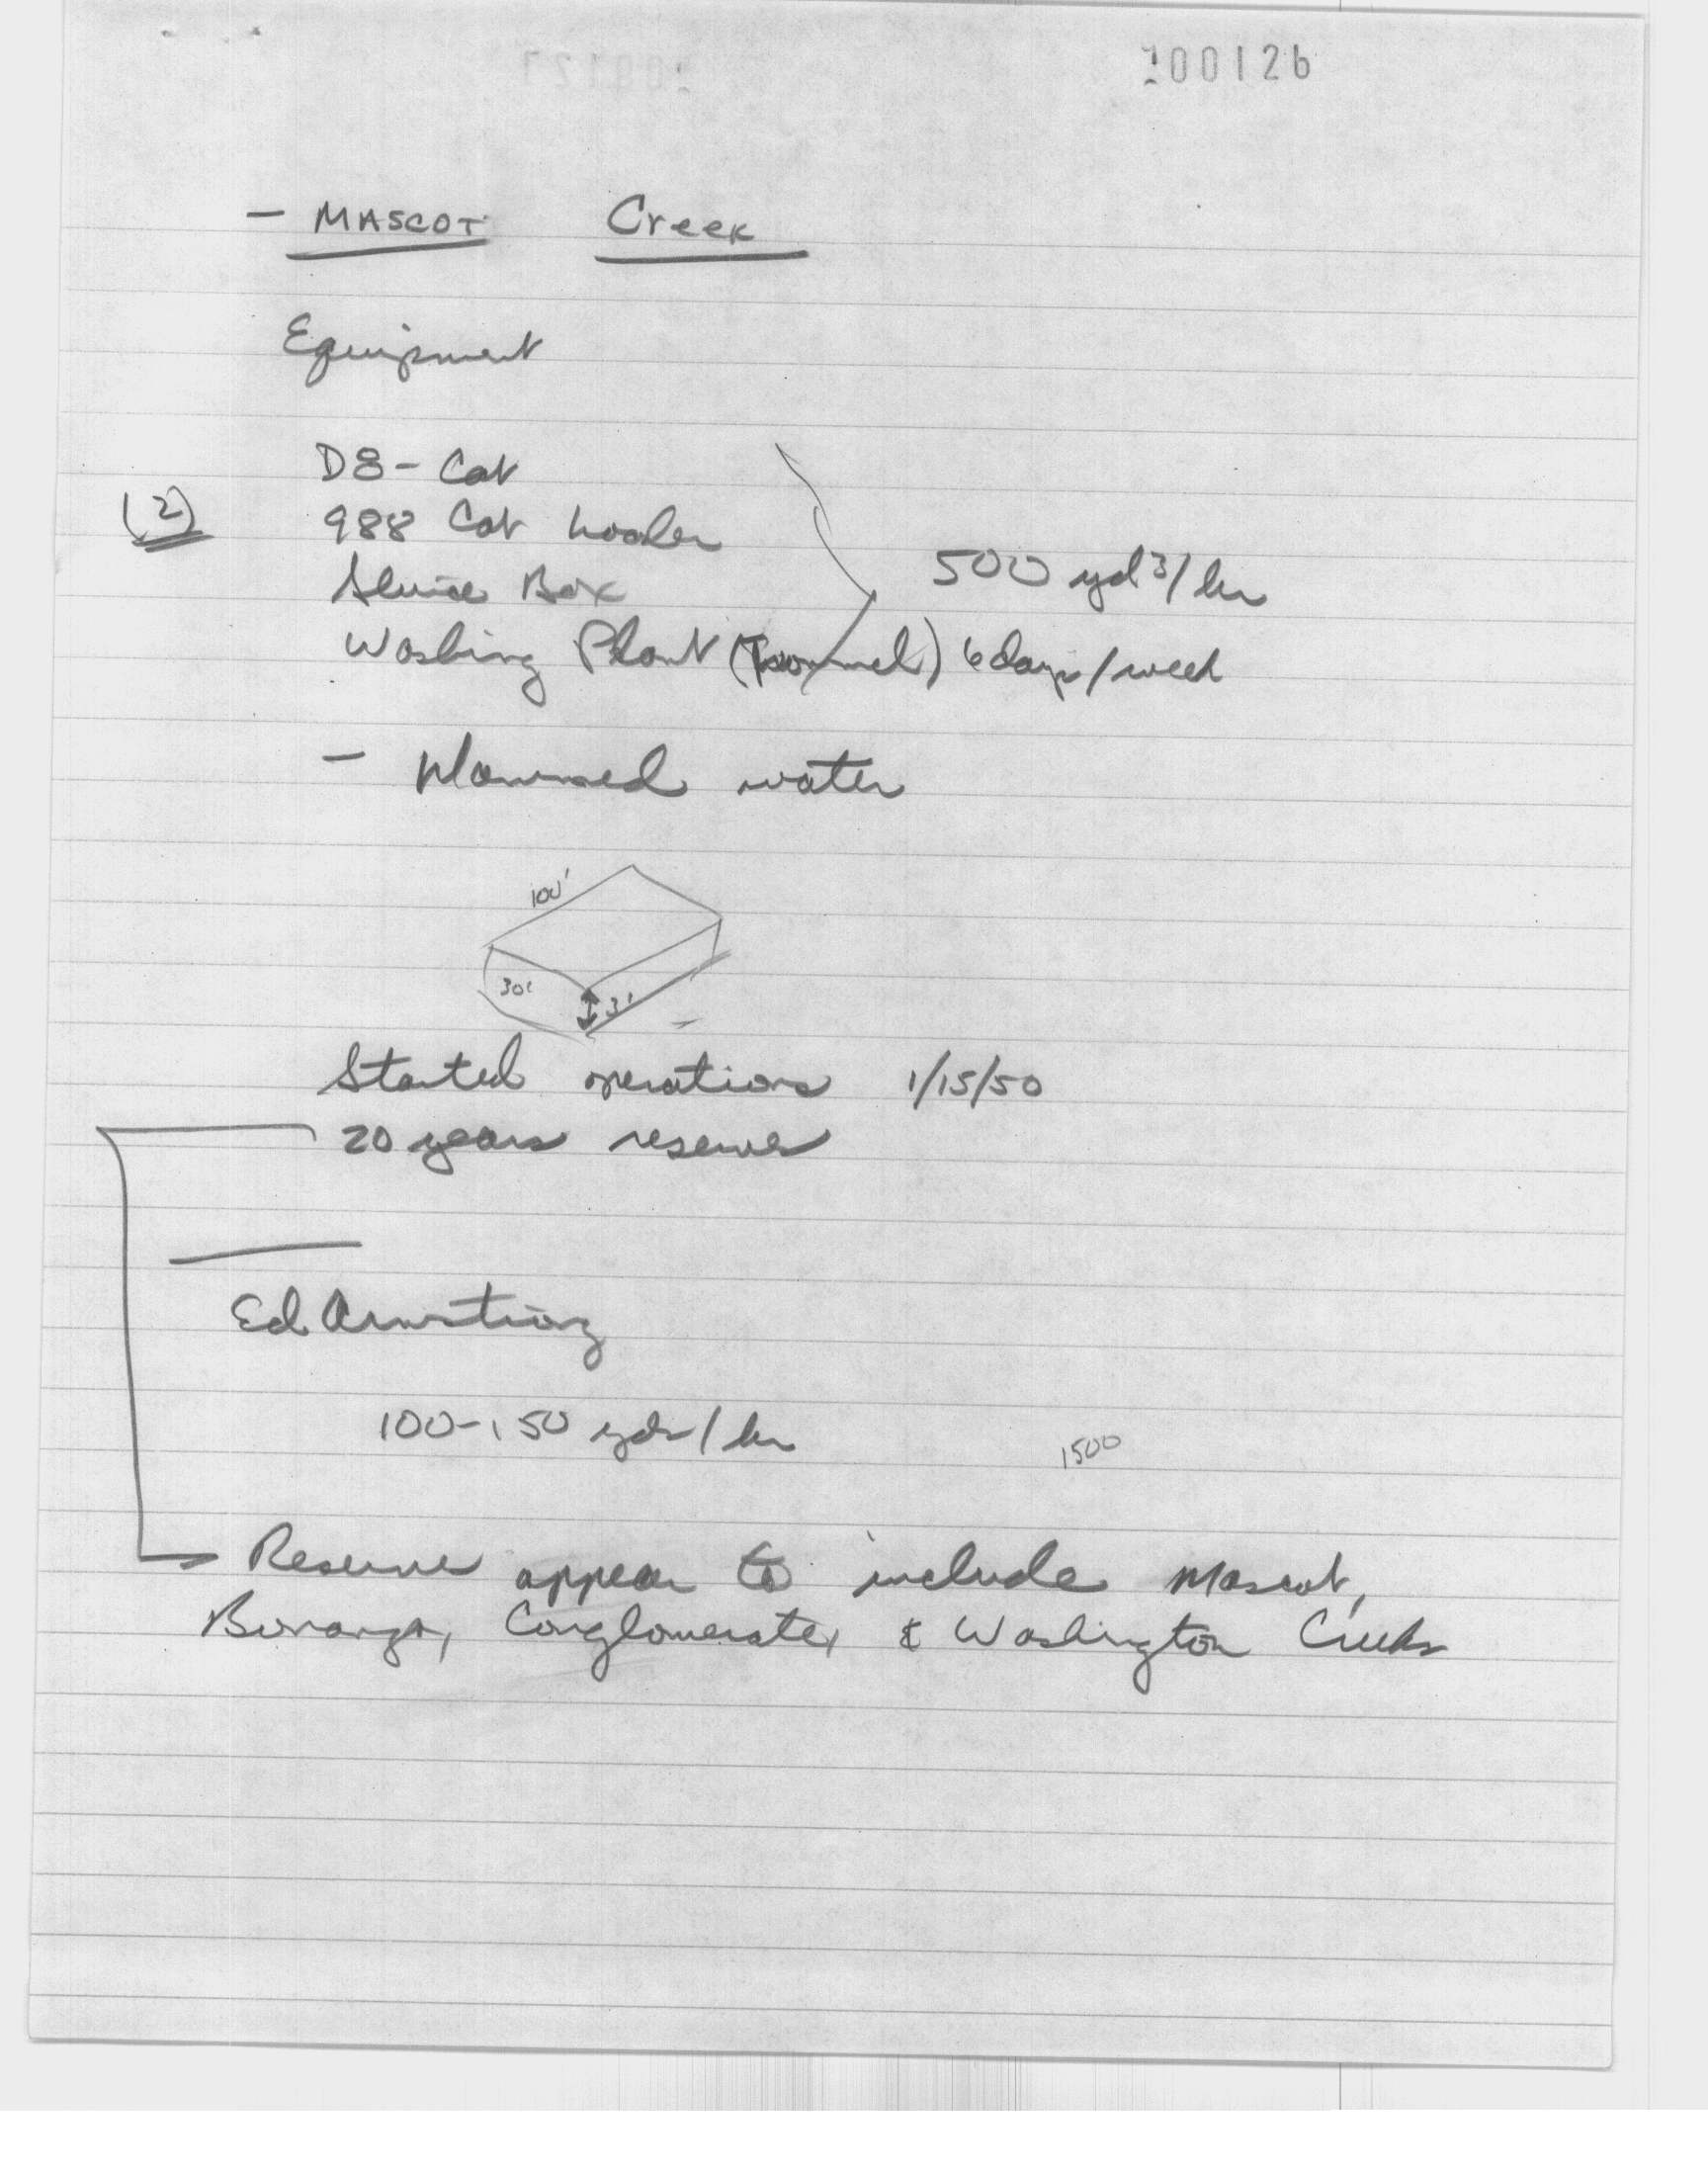 100126
- MASCOT Creek
Equipment
D8 - Cat
(2) 988 Cat Loader
Sluice Box 500 yd3/hr
Washing Plant (Trommel) 6 days/week
- Planned water
100'
30' 3'
Started operations 1/15/50
20 years reserves
Ed Armstrong
100-150 yds/hr
1500
Reserves appear to include Mascot,
Bonanza, Conglomerate, & Washington Creeks